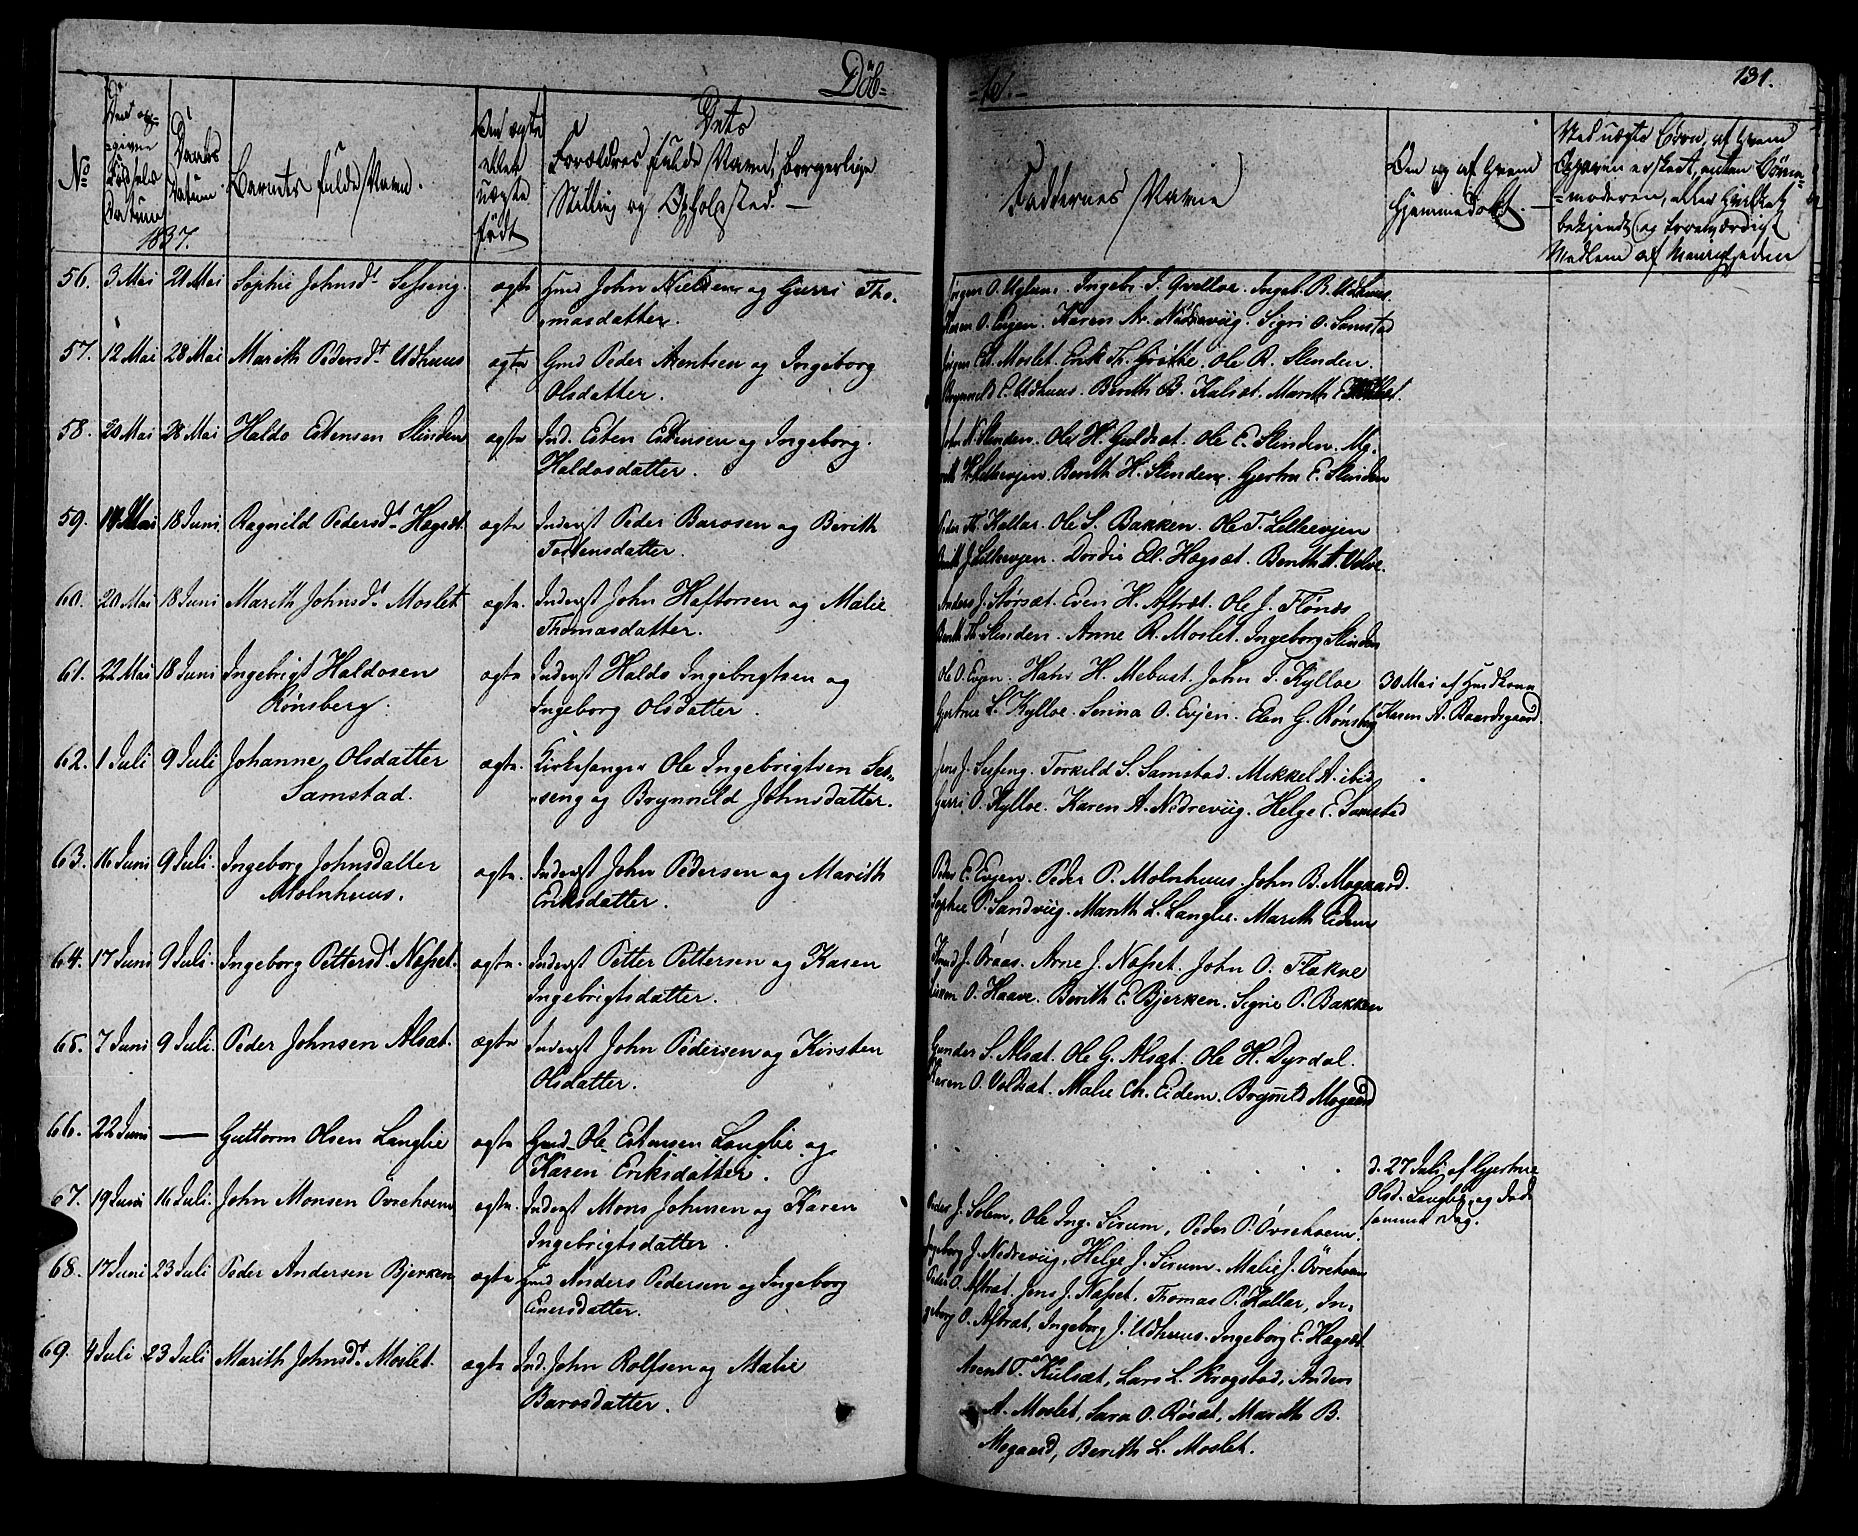 Döb-
-te.-
131.
No
Den opgivne Födsels Datum
1837.
Daabs Datum
Barnets fulde Navn.
Om ægte eller uægte født
Dets
Forældres fulde Navn, borgerlige
Stilling og Opholdsted. -
Faddernes Navne
Om og af hvem
hjemmedøbt.
56. 3 Mai 21 Mai Sophie Johnsdt Sesseng. ægte Gmd John Nielsen og Gurri Tho-
masdatter.
Jørgen O. Uglem. Ingebr. J. Qvelloe. Ingeb. B. Udhuus.
Karen O. Evjen. Karen A. Nedreviig. Sigri O. Samstad
57. 12 Mai 28 Mai Marith Pedersdt Udhuus ægte Gmd Peder Arentsen og Ingeborg
Olsdatter.
Jørgen Moslet. Erik Th. Grøtte. Ole R. Slinden.
E. Udhuus. Berith B. Kulsæt. Marith E.
58. 20 Mai 28 Mai Haldo Estensen Slinden ægte Ind. Esten Estensen og Ingeborg
Haldosdatter.
John N. Slinden. Ole H. Guldset. Ole E. Slinden. Ma-
rith H. Lilleevjen. Berith H. Slinden. Gjertru E. Slinden
59. 14 Mai 18 Juni Ragnild Pedersdt Hægset ægte Inderst Peder Barosen og Berith
Torstensdatter.
Peder Th. Kallar. Ole S. Bakken. Ole T. Lilleevjen
Berith J. Lilleevjen. Dordie El. Hægset. Berith A. Velve.
60. 20 Mai 18 Juni Marith Johnsdt Moslet ægte. Inderst John Haftorsen og Malie
Thomasdatter.
Anders J. Storsæt. Even H. Aftret. Ole J. Flønes
Berith Th. Slinden. Anne R. Moslet. Ingeborg Slinden
61. 22 Mai 18 Juni Ingebrigt Haldosen
Rønsberg.
ægte Inderst Haldo Ingebrigtsen og
Ingeborg Olsdatter.
Ole O. Evjen. Halv H. Mebust. John T. Kylloe
Gjertrue L. Kylloe. Serina O. Evjen. Elen G. Rønsberg
30 Mai af Huuskone
Karen A. Baardsgaard.
62. 1 Juli 9 Juli Johanne Olsdatter
Samstad.
ægte. Kirkesanger Ole Ingebrigtsen Ses-
seng og Brynnild Johnsdatter.
Jens J. Sesseng. Torkild S. Samstad. Mikkel A. ibid
Gurri O. Kylloe. Karen A. Nedreviig. Helge E. Samstad
63. 16 Juni 9 Juli. Ingeborg Johnsdatter
Molnhuus.
ægte. Inderst John Pedersen og Marith
Eriksdatter.
Peder E. Evjen. Peder P. Molnhuus. John B. Mogaard.
Sophie P. Sandviig. Marith L. Langlie. Marith Eidem
64. 17 Juni 9 Juli. Ingeborg Pettersdt Næsset. ægte. Inderst Petter Pettersen og Karen
Ingebrigtsdatter.
J. Øraas. Arne J. Næsset. John O. Flakne
O. Haave. Berith E. Bjerken. Sigrie P. Bakken
65. 7 Juni 9 Juli. Peder Johnsen Alsæt. ægte Inderst John Pedersen og Kirsten
Olsdatter.
Gunder S. Alsæt. Ole G. Alsæt. Ole H. Dyrdal.
Karen O. Voldsæt. Malie Ch. Eidem. Brynild Mogaard
66. 22 Juni — Guttorm Olsen Langlie ægte Gmd Ole Estensen Langlie og
Karen Eriksdatter.
d. 27 Juli af Gjertrue
Olsd. Langlie, og døde
samme Dag.
67. 19 Juni 16 Juli. John Monsen Övrehoem ægte. Inderst Mons Johnsen og Karen
Ingebrigtsdatter.
Peder J. Solem, Ole Ing. Sirum, Peder P. Övrehoem.
Ingeborg J. Nedreviig, Helge J. Sirum. Malie J. Övrehoem
68. 17 Juni 23 Juli Peder Andersen Bjerken ægte Gmd Anders Pedersen og Ingeborg
Einersdatter.
Peder O. Aftrat. Jens J. Næsset. Thomas P. Kallar, In-
geborg O. Aftrat, Ingeborg J. Udhuus. Ingeborg E. Hægset
69. 4 Juli 23 Juli Marith Johnsdt Moslet. ægte Ind. John Rolfsen og Malie
Barosdatter.
Arent T. Kulsæt, Lars L. Krogstad, Anders
A. Moslet, Sara O. Røsæt, Marith B.
Mogaard, Berith L. Moslet.